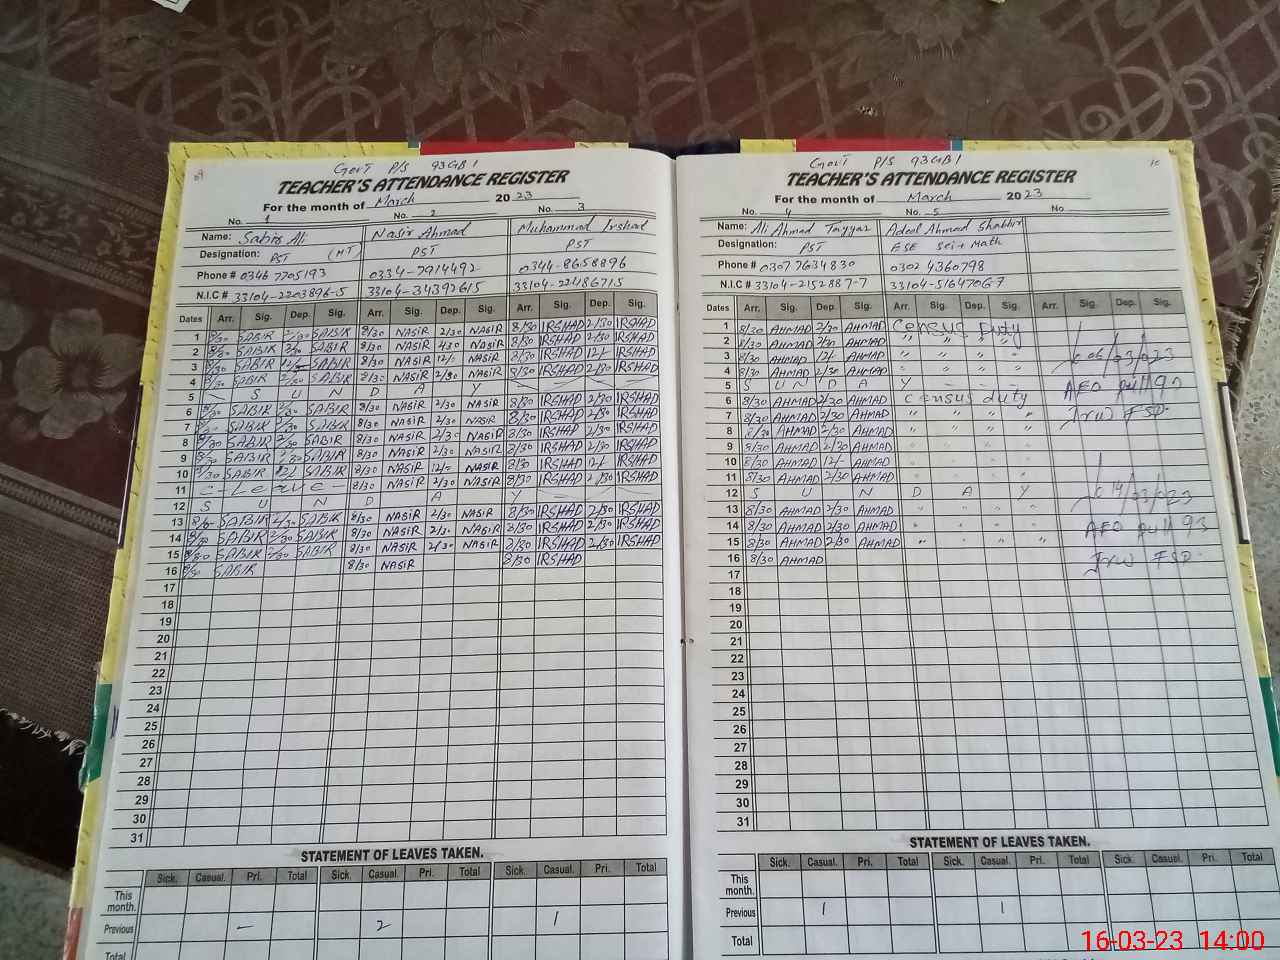 GovT P/S 93GB1
TEACHER'S ATTENDANCE REGISTER
For the month of March 2023
No. 1 No. 2 No. 3
Name: Sabir Ali Nasir Ahmad Muhammad Irshad
Designation: PST (HT) PST PST
Phone # 0346 7705193 0334-7914492 0344-8658896
N.I.C # 33104-2203896-5 33104-34392615 33104-22486715
Dates Arr. Sig. Dep. Sig. Arr. Sig. Dep. Sig. Arr. Sig. Dep. Sig.
1 8/30 SABIR 2/30 SABIR 8/30 NASIR 2/30 NASIR 8/30 IRSHAD 2/30 IRSHAD
2 8/30 SABIR SABIR 8/30 NASIR NASIR 8/30 IRSHAD 2/30 IRSHAD
3 8/30 SABIR 12/- SABIR 8/30 NASIR 12/- NASIR 8/30 IRSHAD 12/- IRSHAD
4 8/30 SABIR 2/30 SABIR 8/30 NASIR 2/30 NASIR 8/30 IRSHAD 2/30 IRSHAD
5 S U N D A Y
6 8/30 SABIR 2/30 SABIR 8/30 NASIR 2/30 NASIR 8/30 IRSHAD 2/30 IRSHAD
7 8/30 SABIR 2/30 SABIR 8/30 NASIR 2/30 NASIR 8/30 IRSHAD 2/30 IRSHAD
8 8/30 SABIR 2/30 SABIR 8/30 NASIR 2/30 NASIR 8/30 IRSHAD 2/30 IRSHAD
9 8/30 SABIR 2/30 SABIR 8/30 NASIR 2/30 NASIR 8/30 IRSHAD 2/30 IRSHAD
10 8/30 SABIR 12/- SABIR 8/30 NASIR 12/- NASIR 8/30 IRSHAD 12/- IRSHAD
11 C-Leave- 8/30 NASIR 2/30 NASIR 8/30 IRSHAD 2/30 IRSHAD
12 S U N D A Y
13 SABIR 2/30 SABIR 8/30 NASIR 2/30 NASIR 8/30 IRSHAD 2/30 IRSHAD
14 8/30 SABIR 2/30 SABIR 8/30 NASIR 2/30 NASIR 8/30 IRSHAD 2/30 IRSHAD
15 8/30 SABIR 2/30 SABIR 8/30 NASIR 2/30 NASIR 8/30 IRSHAD 2/30 IRSHAD
16 8/30 SABIR 8/30 NASIR 8/30 IRSHAD
17
18
19
20
21
22
23
24
25
26
27
28
29
30
31
STATEMENT OF LEAVES TAKEN.
Sick. Casual. Pri. Total Sick. Casual. Pri. Total Sick. Casual. Pri. Total
This month.
Previous - 2 1
Total
GovT P/S 93GB1
TEACHER'S ATTENDANCE REGISTER
For the month of March 2023
No. 4 No. 5 No.
Name: Ali Ahmad Tayyar Adeel Ahmad Shabbir
Designation: PST ESE Sci+Math
Phone # 0307 7634830 0302 4360798
N.I.C # 33104-2152887-7 33104-5164706-7
Dates Arr. Sig. Dep. Sig. Arr. Sig. Dep. Sig. Arr. Sig. Dep. Sig.
1 8/30 AHMAD 2/30 AHMAD Census Duty
2 8/30 AHMAD 2/30 AHMAD " " " "
3 8/30 AHMAD 12/- AHMAD " " " "
4 8/30 AHMAD 2/30 AHMAD " " " "
5 S U N D A Y
6 8/30 AHMAD 2/30 AHMAD Census duty
7 8/30 AHMAD 2/30 AHMAD " " " "
8 8/30 AHMAD 2/30 AHMAD " " " "
9 8/30 AHMAD 2/30 AHMAD " " " "
10 8/30 AHMAD 12/- AHMAD " " " "
11 8/30 AHMAD 2/30 AHMAD " " " "
12 S U N D A Y
13 8/30 AHMAD 2/30 AHMAD " " " "
14 8/30 AHMAD 2/30 AHMAD " " " "
15 8/30 AHMAD 2/30 AHMAD " " " "
16 8/30 AHMAD
17
18
19
20
21
22
23
24
25
26
27
28
29
30
31
06/03/023
AEO 93
FSD
14/03/023
AEO 93
FSD
STATEMENT OF LEAVES TAKEN.
Sick. Casual. Pri. Total Sick. Casual. Pri. Total Sick. Casual. Pri. Total
This month.
Previous 1 1
Total
16-03-23 14:00